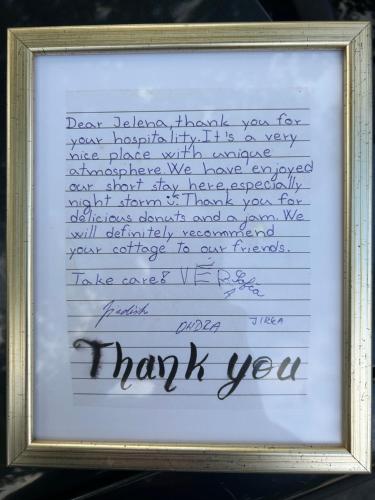 Dear Jelena, thank you for
your hospitality. It's a very
nice place with unique
atmosphere. We have enjoyed
our short stay here, especially
night storm :). Thank you for
delicious donuts and a jam. We
will definitely recommend
your cottage to our friends.
Take care!
ONDRA JIRKA
Thank you